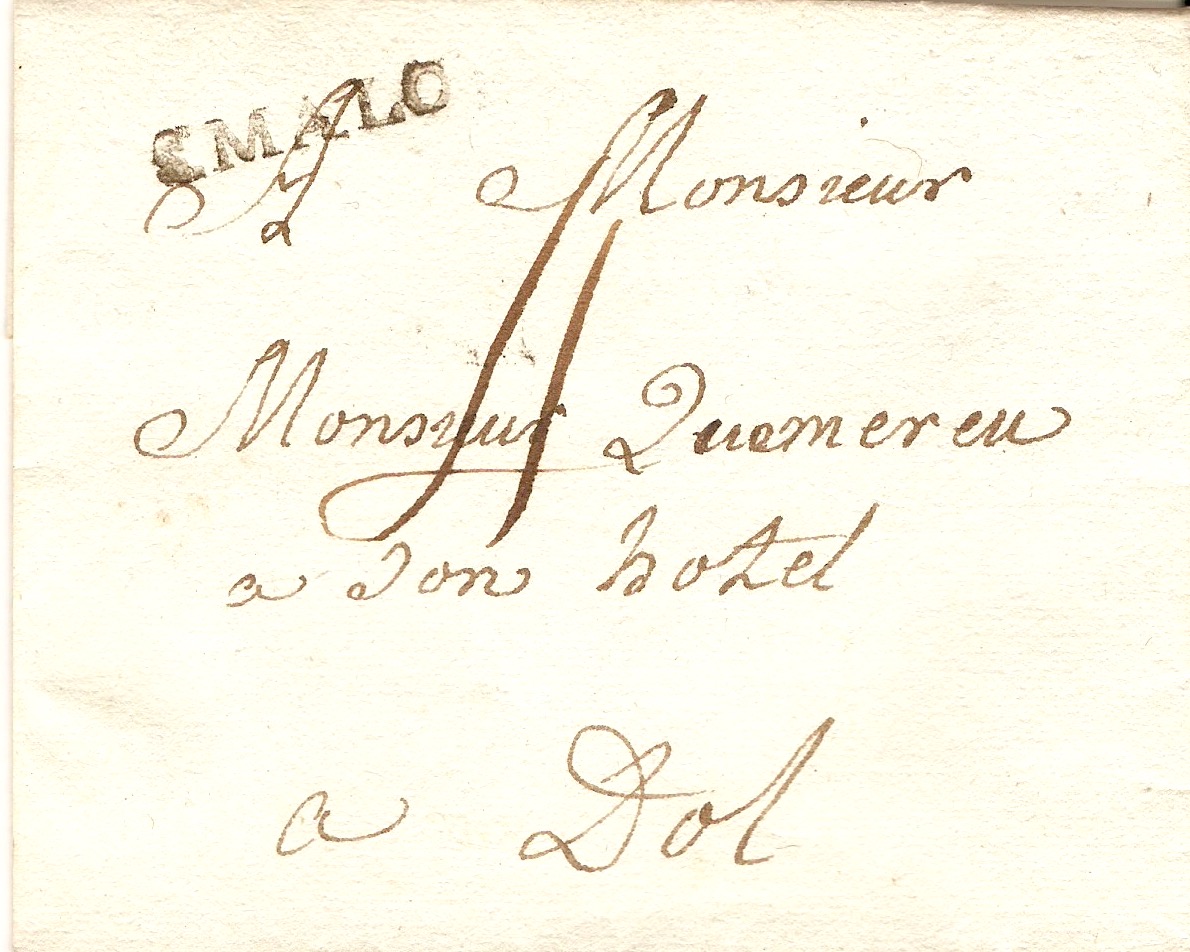 S MALO
A Monsieur
4
Monsieur Quemereu
a son hotel
a Dol